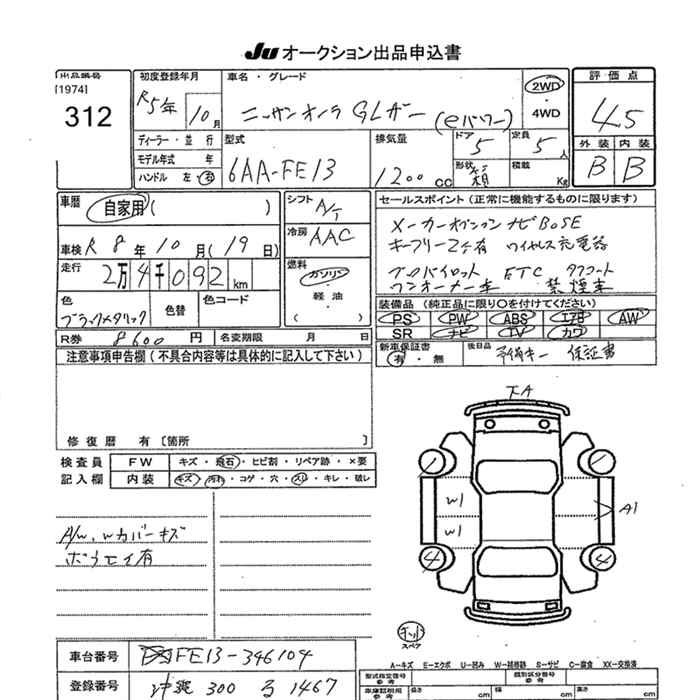 Ju オークション出品申込書
出品番号
[1974]
312
初度登録年月
R5年 10月
ディーラー・並行
モデル年式 年
ハンドル 左・右
車名・グレード
ニッサンオーラ GLザー (eパワー)
2WD
・
4WD
評価点
4.5
外装 内装
B B
型式
6AA-FE13
排気量
1200 cc
ドア 5
定員 5人
形状 箱
積載 Kg
車歴
自家用( )
車検 R 8年 10月(19日)
走行
2万4千092 km
色
ブラックメタリック
色替
色コード
シフト
A/T
冷房
AAC
燃料
ガソリン
・
軽油
・
( )
セールスポイント(正常に機能するものに限ります)
メーカーオプション ナビ BOSE
キーフリー2ケ有 ワイヤレス充電器
プロパイロット ETC タフコート
ワンオーナー車 禁煙車
装備品(純正品に限り○を付けてください)
PS PW ABS エアB AW
SR ナビ TV カワ
R券 8600円
名変期限 月 日
新車保証書
有・無
後日品 予備キー 保証書
注意事項申告欄(不具合内容等は具体的に記入して下さい)
修復歴 有[箇所 ]
検査員
記入欄
FW キズ・飛石・ヒビ割・リペア跡・×要
内装 キズ・汚れ・コゲ・穴・スレ・キレ・破レ
A/w, wカバーキズ
ボウエイ有
下A
W1
W1
A1
4
4
スペア
A-キズ E-エクボ U-凹み W-補修跡 S-サビ C-腐食 XX-交換済
車台番号 FE13-346104
登録番号 300 る 1467
型式指定番号
参考
類別区分番号
参考
車庫証明用
参考
長さ cm
幅 cm
高さ cm